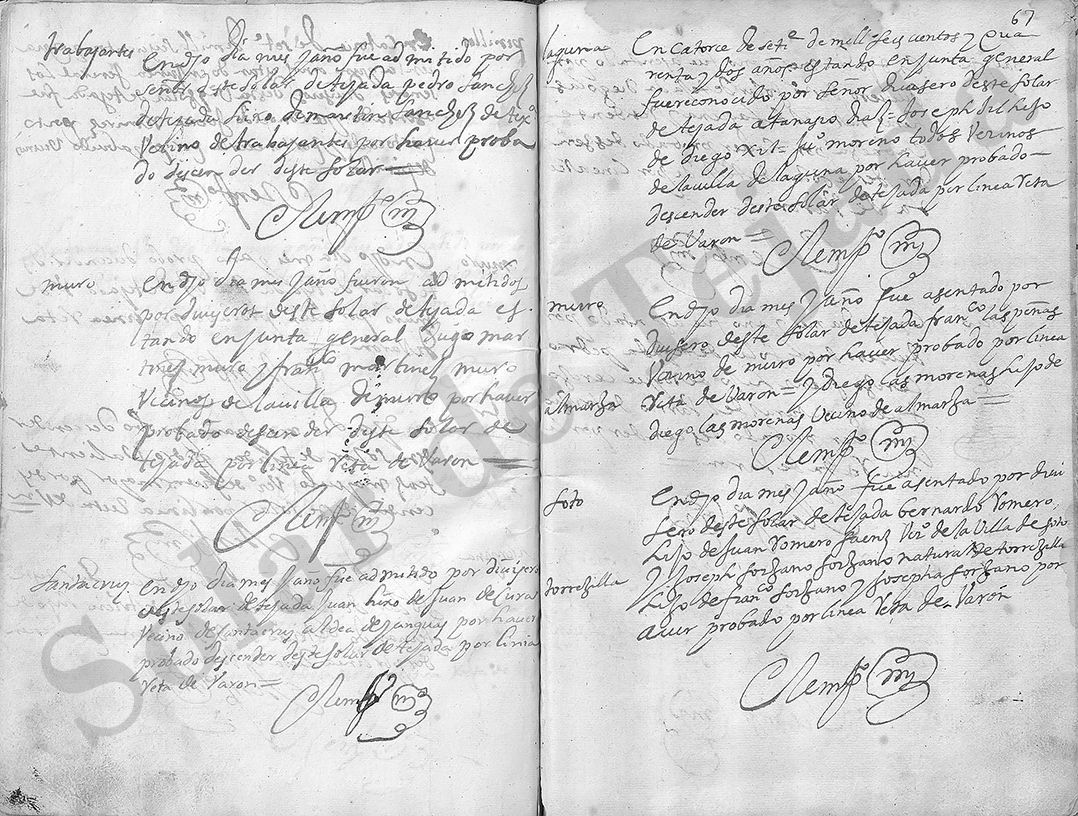 trabajantes
En dho dia mes y año fue admitido por
señor deste solar de tejada pedro sanchez
de tejada hijo de martin sanchez de tex.ª
Vecino de trabajantes por haver proba
do descender deste solar
muro
En dho dia mes y año fueron admitidos
por diviseros deste solar de tejada es
tando en junta general Diego mar
tinez muro y fran.co martinez muro
Vecinos de la villa de muro por haver
probado descender deste solar de
tejada por linea Reta de Varon
Santa cruz
En dho dia mes y año fue admitido por divisero
deste solar de tejada Juan hijo de Juan de
Vecino de santa cruz aldea de por haver
probado descender deste solar de tejada por linia
Reta de Varon
67
laguna
En catorce de seti.e de mill seiscientos y qua
renta y dos años estando en junta general
fue reconocido por señor divisero deste solar
de tejada atanasio Joseph hijo
de Diego moreno todos Vecinos
de la villa de laguna por haver probado
descender deste solar de tejada por linea Reta
de Varon
muro
En dho dia mes y año fue asentado por
divisero deste solar de tejada fran.co las peñas
Vecino de muro por haver probado por linea
almarza
Reta de Varon y Diego las morenas hijo de
diego las morenas Vecino de almarza
soto
En dho dia mes y año fue asentado por divi
sero deste solar de tejada bernardo Romero
hijo de Juan Romero saenz Vz.º de la Villa de soto
torrezilla
y Joseph sorzano sorzano natural de torrezilla
hijo de fran.co sorzano y Josepha sorzano por
aver probado por linea Reta de Varon
Solar de Tejada